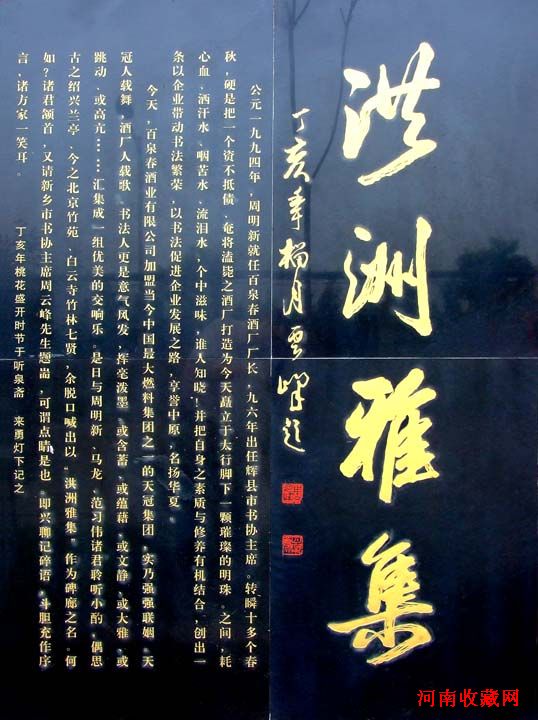 洪洲雅集
丁亥年榴月云峰题
公元一九九四年，周明新就任百泉春酒厂厂长，九六年出任辉县市书协主席。转瞬十多个春
秋，硬是把一个资不抵债、奄将溘毙之酒厂打造为今天矗立于太行脚下一颗璀璨的明珠。之间，耗
心血、洒汗水、咽苦水、流泪水，个中滋味，谁人知晓！并把自身之素质与修养有机结合，创出一
条以企业带动书法繁荣，以书法促进企业发展之路，享誉中原，名扬华夏。
今天，百泉春酒业有限公司加盟当今中国最大燃料集团之一的天冠集团，实乃强强联姻。天
冠人载舞，酒厂人载歌。书法人更是意气风发，挥毫泼墨。或含蓄、或蕴藉、或文静、或大雅、或
跳动、或高亢……汇集成一组优美的交响乐。是日与周明新、马龙、范习伟诸君聆听小酌，偶思
古之绍兴兰亭、今之北京竹苑、白云寺竹林七贤，余脱口喊出以“洪洲雅集”作为碑廊之名。何
如？诸君颔首，又请新乡市书协主席周云峰先生题耑，可谓点睛是也。即兴聊记碎语，斗胆充作序
言，诸方家一笑耳。
丁亥年桃花盛开时节于听泉斋　来勇灯下记之
河南收藏网